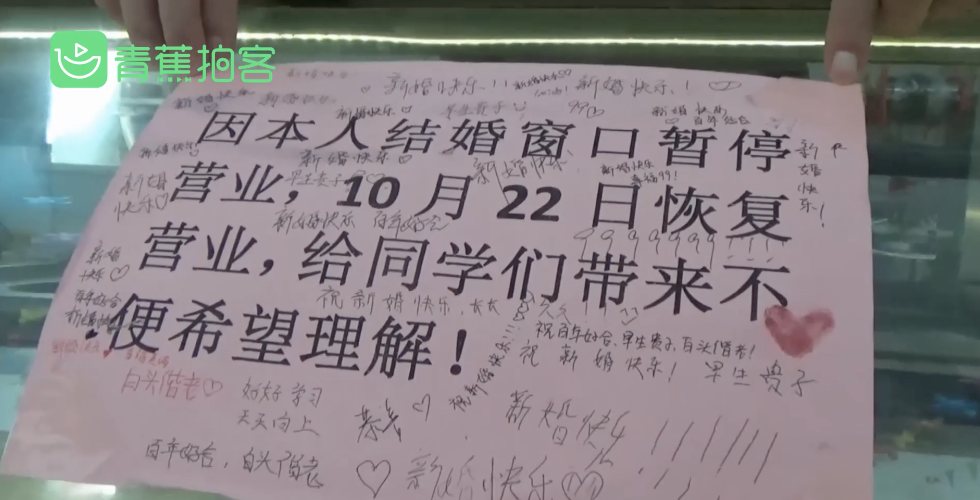 青蕉拍客
新婚快乐!!!
新婚快乐!
新婚快乐
新婚快乐
新婚快乐
早生贵子
99
新婚快乐
百年好合
因本人结婚窗口暂停
新婚快乐!
新婚快乐
新婚快乐
新婚快乐
幸福99!
新婚快乐!
新婚快乐
早生贵子
营业，10月22日恢复
新婚快乐 百年好合
99999999
营业，给同学们带来不
新婚快乐
百年好合
新婚快乐
祝新婚快乐，长长久久
便希望理解！
祝百年好合、早生贵子、白头偕老!
祝新婚快乐!
早生贵子
祝新婚快乐!!!
新婚快乐
白头偕老
好好学习
天天向上
新婚快乐!!!!!!
百年好合，白头偕老
新婚快乐